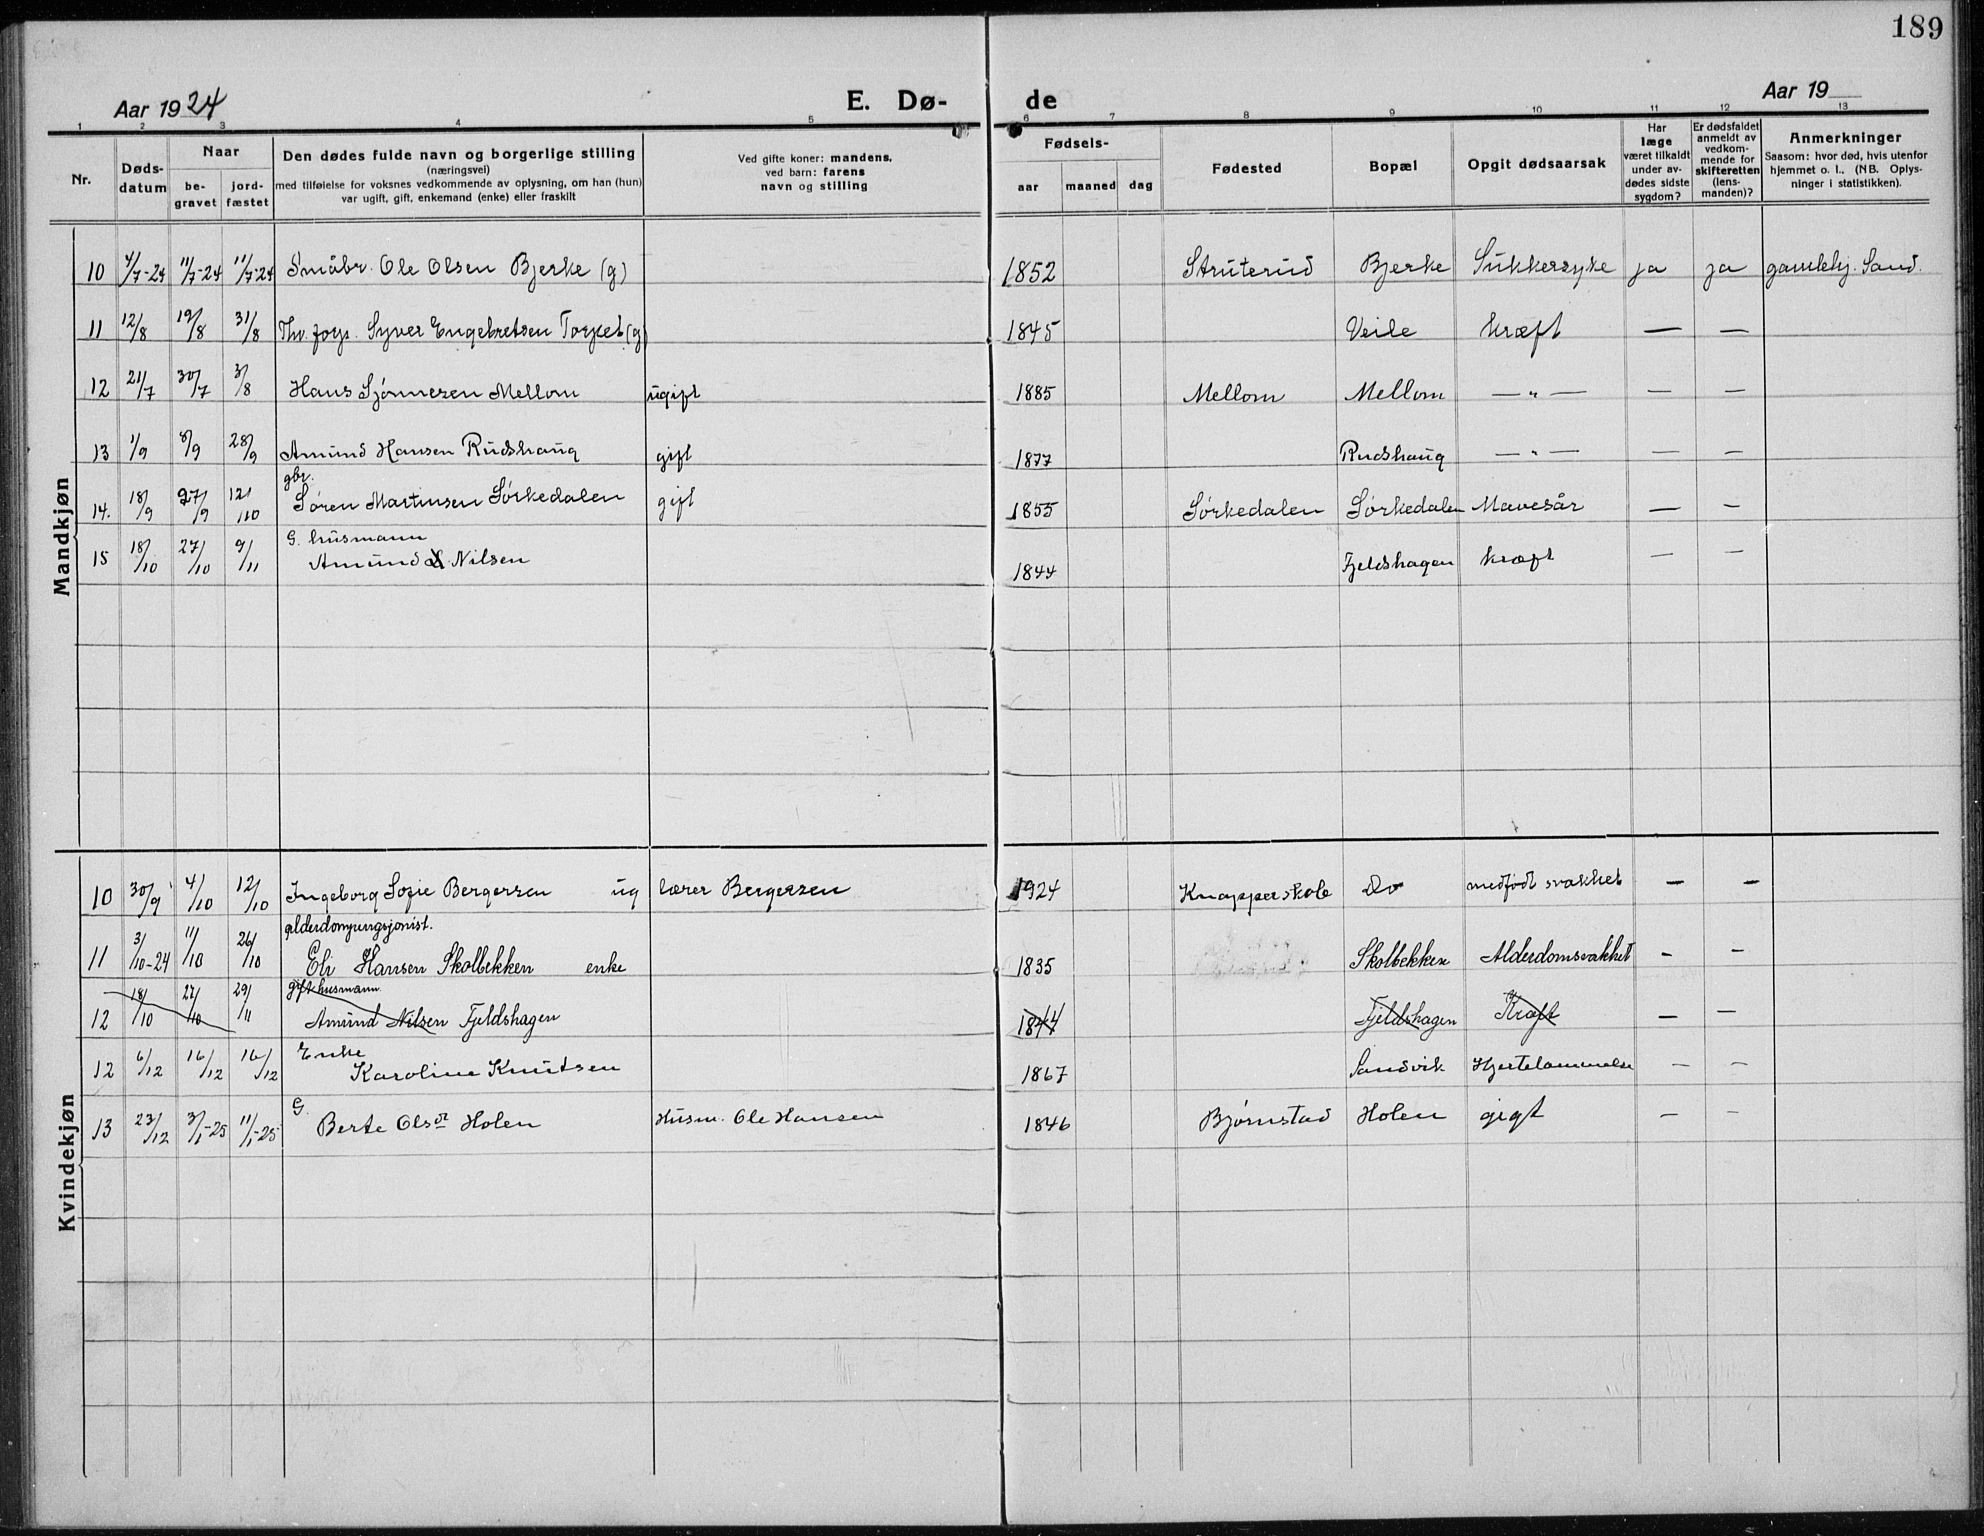 189
Aar 1924 E. Dø- de Aar 19
1 2 3 4 5 6 7 8 9 10 11 12 13
Nr.
Døds-
datum
Naar
be-
gravet
jord-
fæstet
Den dødes fulde navn og borgerlige stilling
(næringsvei)
med tilføielse for voksnes vedkommende av oplysning, om han (hun)
var ugift, gift, enkemand (enke) eller fraskilt
Ved gifte koner: mandens,
ved barn: farens
navn og stilling
Fødsels-
aar maaned dag
Fødested
Bopæl
Opgit dødsaarsak
Har
læge
været tilkaldt
under av-
dødes sidste
sygdom?
Er dødsfaldet
anmeldt av
vedkom-
mende for
skifteretten
(lens-
manden)?
Anmerkninger
Saasom: hvor død, hvis utenfor
hjemmet o. l., (NB. Oplys-
ninger i statistikken).
Mandkjøn
10 4/7-24 11/7-24 11/7-24 Småbr. Ole Olsen Bjerke (g) 1852 Struterud Bjerke Sukkersyke ja ja gamlehj. Sand.
11 12/8 19/8 31/8 Syver Engebretsen (g) 1845 Veile kræft — —
12 21/7 30/7 3/8 Hans Sjønnesen Mellom ugift 1885 Mellom Mellom — " — — —
13 1/9 8/9 28/9 Amund Hansen Rudshaug gift 1877 Rudshaug — " — — —
gbr.
14. 18/9 27/9 12/10 Søren Martinsen Sørkedalen gift 1855 Sørkedalen Sørkedalen Mavesår — —
G. husmann
15 18/10 27/10 9/11 Amund Nilsen 1844 Fjeldshagen kræft — —
Kvindekjøn
10 30/9 4/10 12/10 Ingeborg Sofie Bergersen ug lærer Bergersen 1924 Knapperskole Do medfødt svakhet — —
11 3/10-24 11/10 26/10 Eli Hansen Skolbekken enke 1835 Skolbekken Alderdomsvakhet — —
gift husmann.
12 18/10 27/10 29/11 Amund Nilsen Fjeldshagen 1844 Fjeldshagen Kræft — —
Enke
12 6/12 16/12 16/12 Karoline Knutsen 1867 Sandvik Hjertelammelse — —
G.
13 23/12 3/1-25 11/1-25 Berte Olsdt Holen Husm. Ole Hansen 1846 Bjørnstad Holen gigt — —